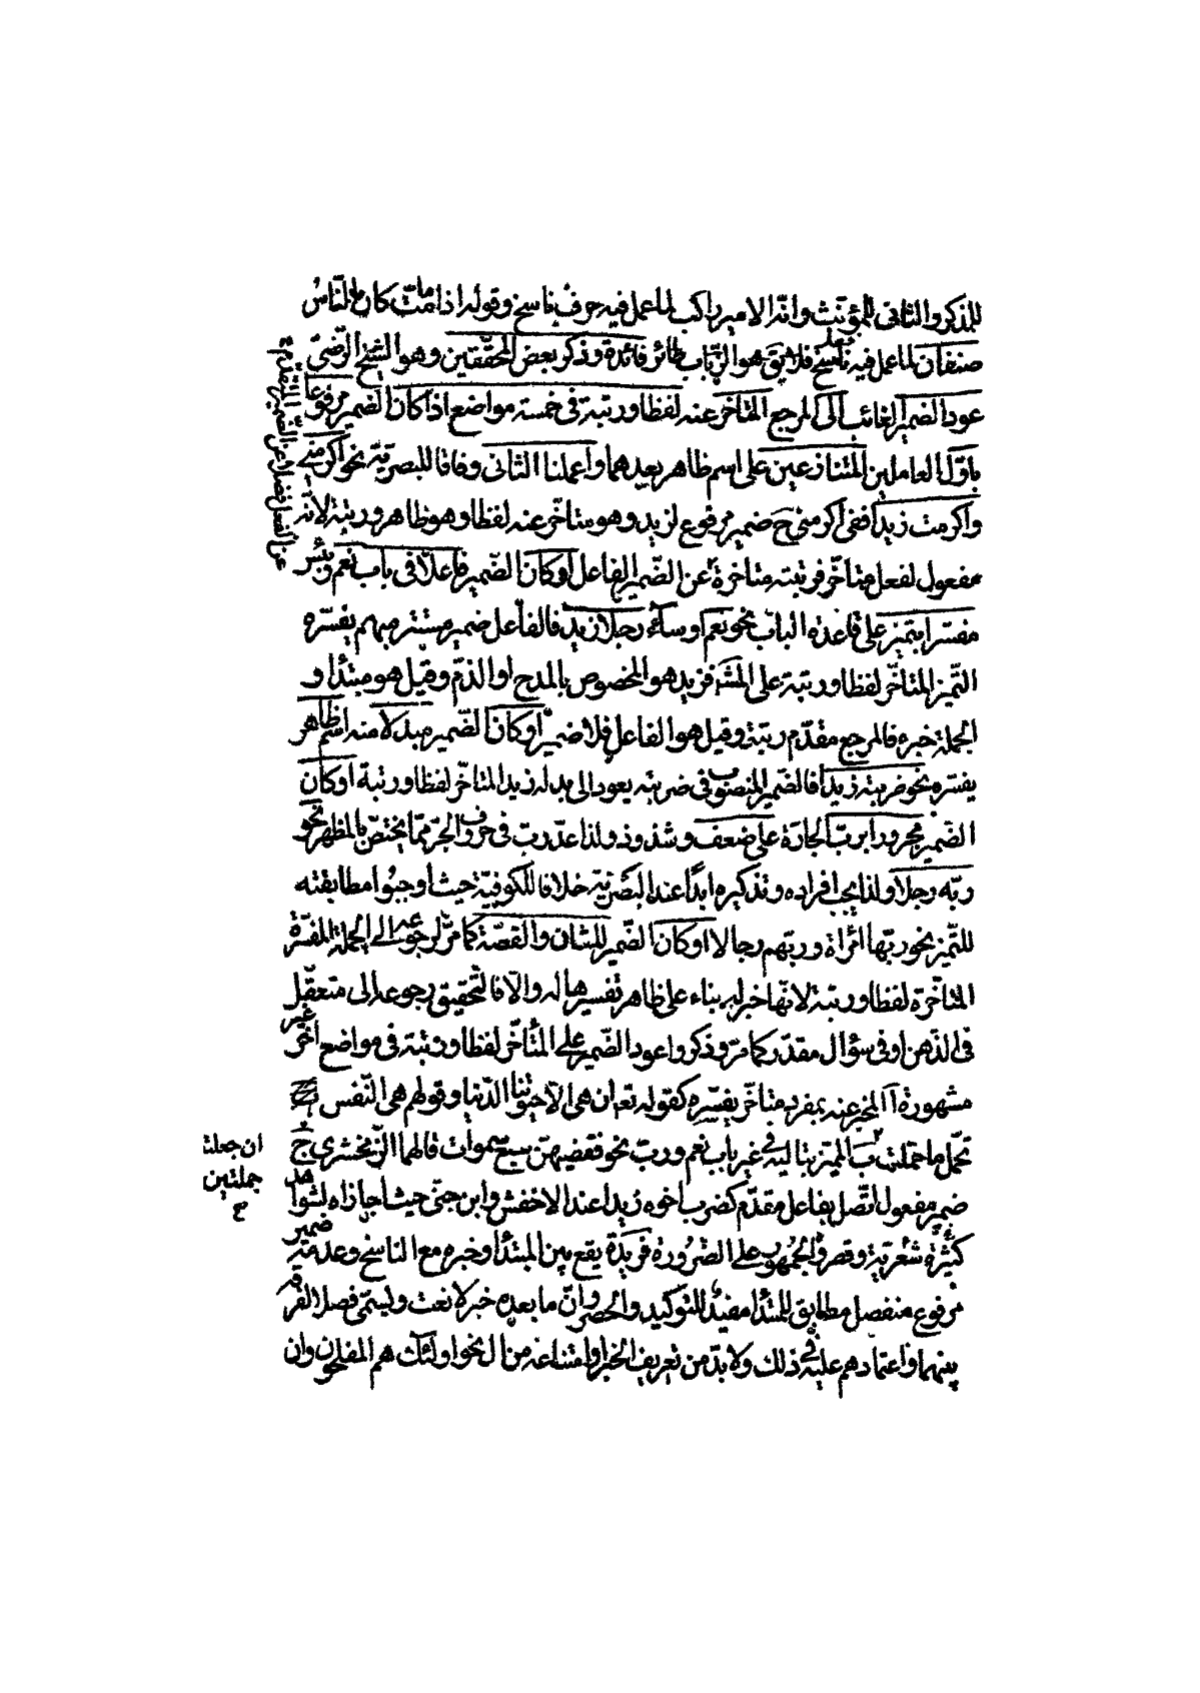 للمذكر والثانى للمؤنّث وانّه الامير راكب لما عمل فيه حرفُ ناسخ وقوله اذا متّ كان النّاسُ
صنفان لما عمل فيه فعل ناسخ فلا يق هو الرّباب طائر فائدة وذكر بعض المحقّقين وهو الشيخ الرّضىّ
عود الضمير الغائب الى المرجع المتأخّر عنه لفظا ورتبة فى خمسة مواضع اذا كان الضمير مرفوعا
باوّل العاملين المتنازعين على اسم ظاهر بعدهما واعملنا الثانى وفاقا للبصريّة نحو اكرمنى
واكرمت زيدا ففى اكرمنى ح ضمير مرفوع لزيد وهو متأخّر عنه لفظا وهو ظاهر ورتبة لانّه
مفعول لفعل متأخّر فرتبته متاخرة عن الضّمير الفاعل او كان الضّمير فاعلا فى باب نعم وبئس
مفسّرا بتميز على قاعدة الباب نحو نعم او ساء رجلا زيد فالفاعل ضمير مستتر مبهم يفسّره
التّميز المتأخّر لفظا ورتبة على المش فزيد هو المخصوص بالمدح او الذمّ وقيل هو مبتدأ و
الجملة خبره فالمرجع مقدّم رتبة وقيل هو الفاعل فلا ضمير او كان الضّمير مبدلا منه اسم ظاهر
يفسّره نحو ضربته زيدا فالضّمير المنصوب فى ضربته يعود الى بدله زيد المتاخّر لفظا ورتبة او كان
الضّمير مجرورا بربّ الجارّة على ضعف وشذوذ ولذا عدّ ربّ فى حروف الجرّ ممّا يختصّ بالمظهر نحو
ربّه رجلا ولذا يجب افراده وتذكيره ابدًا عند البصريّة خلافا للكوفيّة حيث اوجبُوا مطابقته
للتّميز نحو ربّها امرأة وربّهم رجالا او كان الضّمير للشان والقصّة كما مرّ لرجوعه الى الجملة المفسّرة
المتأخّرة لفظا ورتبة لانّها خبر له بناء على ظاهر تفسيرها له والّا فالتّحقيق رجوعه الى متعقّل
فى الذّهن او فى سؤال مقدّر كما مرّ وذكروا عود الضّمير على المتأخّر لفظا ورتبة فى مواضع اُخر غير
مشهورة آ المخبر عنه بمفرد متأخّر يفسّره كقوله تع ان هى الّا حيوتنا الدّنيا وقولهم هى النّفس
تحمل ما حملت ب المميّز بتاليه فى غير باب نعم وربّ نحو فقضيهنّ سبع سموات قالهما الزّمخشرى ج
ضمير مفعول اتّصل بفاعل مقدّم كضرب اخوه زيدا عند الاخفش وابن جنّى حيث اجازاه لشواهد
كثيرة شعريّة وقصره الجمهور على الضّرورة فريدة يقع بين المبتدأ وخبره مع الناسخ وعدمه ضمير
مرفوع منفصل مطابق للمبتدأ مفيدٌ للتوكيد والحصر وانّ ما بعده خبر لا نعت ويسمّى فصلا لفرقه
بينهما واعتمادهم عليه فى ذلك ولا بدّ من تعريف الخبر او امتناعه من ال نحو اولئك هم المفلحون وان
ان جعلت
جملتين
ع